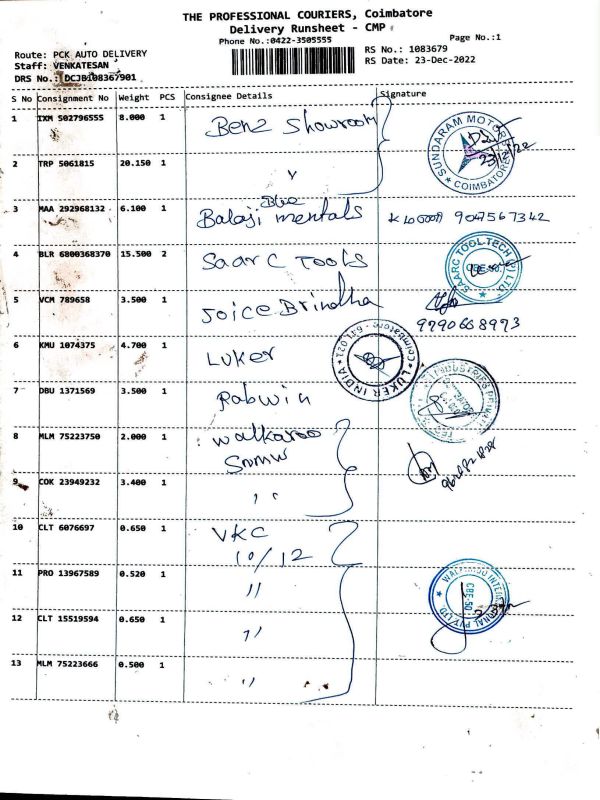 THE PROFESSIONAL COURIERS, Coimbatore
Delivery Runsheet - CMP
Phone No.:0422-3505555
Page No.:1
Route: PCK AUTO DELIVERY
Staff: VENKATESAN
DRS No.: DCJB108367901
RS No.: 1083679
RS Date: 23-Dec-2022
S No Consignment No Weight PCS Consignee Details Signature
1 IXM 502796555 8.000 1 Benz Showroom
SUNDARAM MOTORS COIMBATORE
23/12/22
2 TRP 5061815 20.150 1 "
3 MAA 292968132 6.100 1 Balaji Blue mentals 9047567342
4 BLR 6800368370 15.500 2 Saarc Tools
SAARC TOOL-TECH (P) LTD.
5 VCM 789658 3.500 1 Joice Brindha
9790668993
6 KMU 1074375 4.700 1 Luker
LUKER INDIA Coimbatore - 641 021
7 DBU 1371569 3.500 1 Rabwin
8 MLM 75223750 2.000 1 Walkaroo
Snmw
9 COK 23949232 3.400 1 "
10 CLT 6076697 0.650 1 VKC
10/12
11 PRO 13967589 0.520 1 "
WALKAROO INTERNATIONAL PVT.LTD.
CBE-50
12 CLT 15519594 0.650 1 "
13 MLM 75223666 0.500 1 "